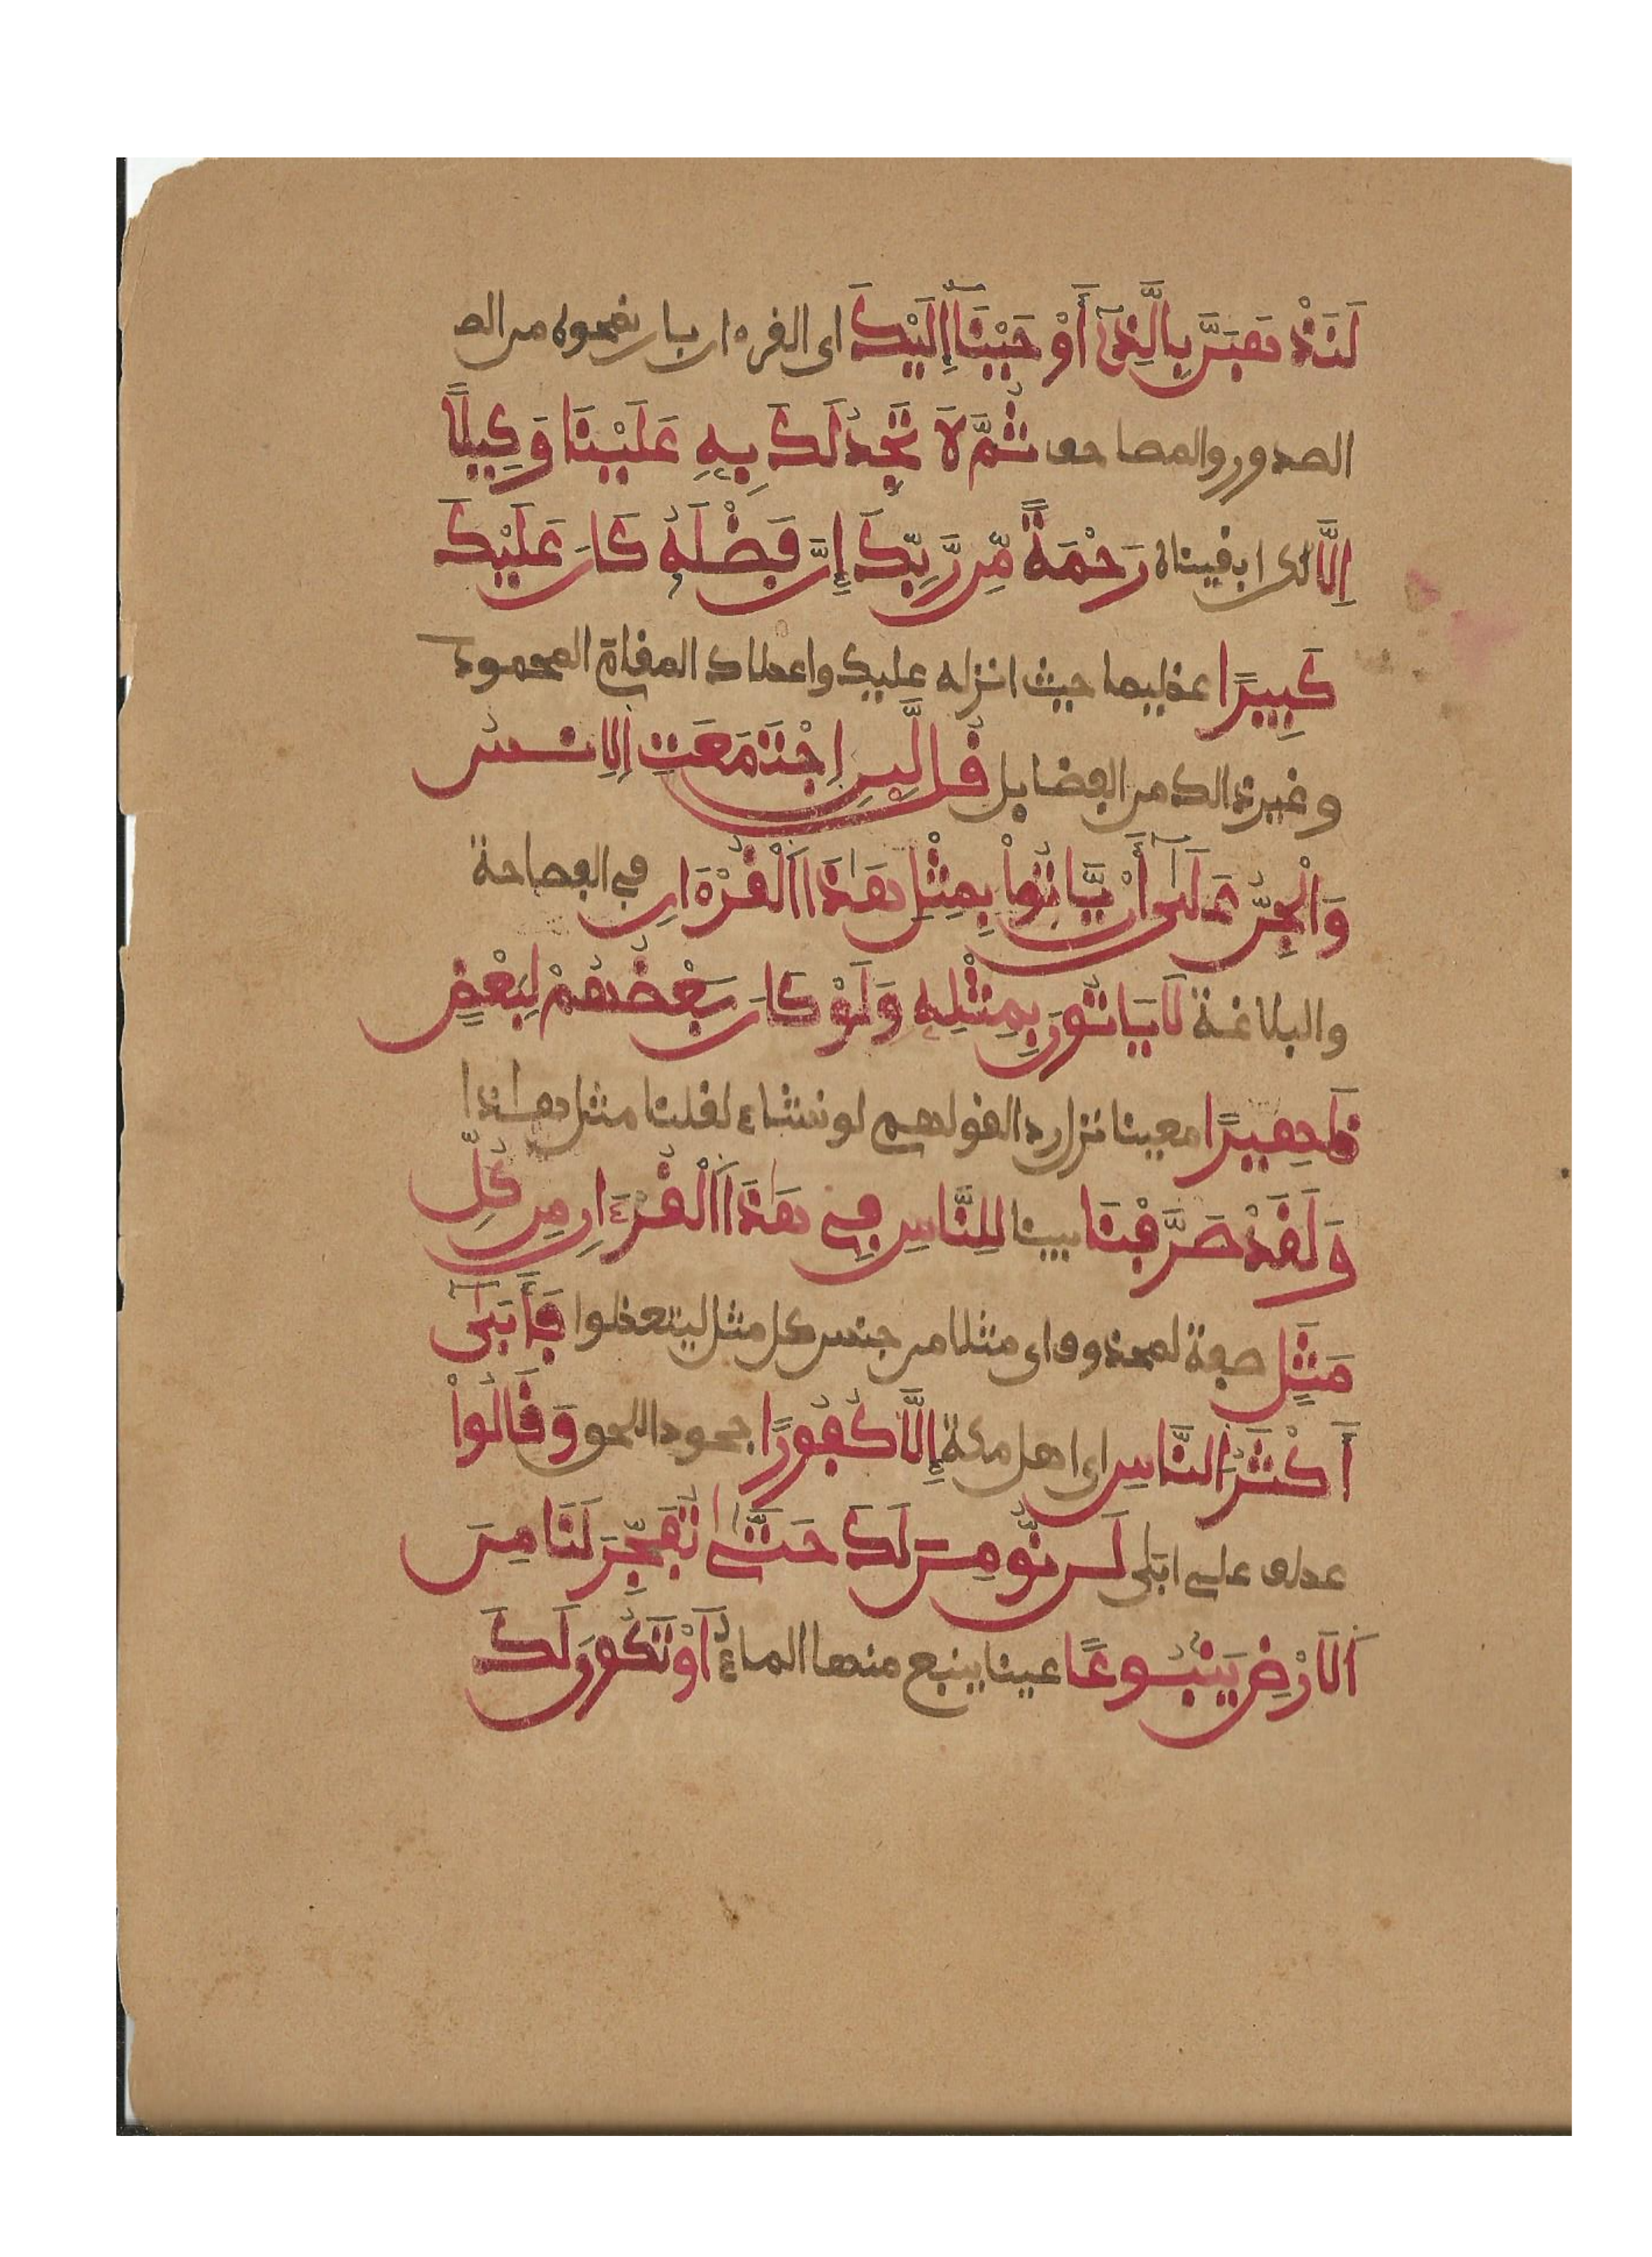 لَنَذْهَبَنَّ بِالَّذِي أَوْحَيْنَا إِلَيْكَ اى القرءان بان نمحوه من الصـ
الصدور والمصاحف ثُمَّ لَا تَجِدُ لَكَ بِهِ عَلَيْنَا وَكِيلًا
اِلَّا لكن ابقيناه رَحْمَةً مِّن رَّبِّكَ إِنَّ فَضْلَهُ كَانَ عَلَيْكَ
كَبِيرًا عظيما حيث انزله عليك واعطاك المقام المحمود
وغير ذالك من الفضايل قُل لَّئِنِ اِجْتَمَعَتِ اِلانسُ
وَالْجِنُّ عَلَىٰ أَنْ يَّاتُواْ بِمِثْلِ هَٰذَا اَلْقُرْءَانِ في الفصاحة
والبلاغة لَا يَاتُونَ بِمِثْلِهِ وَلَوْ كَانَ بَعْضُهُمْ لِبَعْضٍ
ظَهِيرًا معينا نزل ردا لقولهم لو نشاء لقلنا مثل هاذا
وَلَقَدْ صَرَّفْنَا بينا لِلنَّاسِ فِي هَٰذَا اَلْقُرْءَانِ مِن كُلِّ
مَثَلٍ صفة لمحذوف اى مثلا من جنس كل مثل ليتعظوا فَأَبَىٰ
أَكْثَرُ النَّاسِ اى اهل مكة إِلَّا كُفُورًا جحودا للحق وَقَالُواْ
عطف على ابى لَن نُّومِنَ لَكَ حَتَّىٰ تُفَجِّرَ لَنَا مِنَ
اَلَارْضِ يَنبُوعًا عينا ينبع منها الماء أَوْ تَكُونَ لَكَ